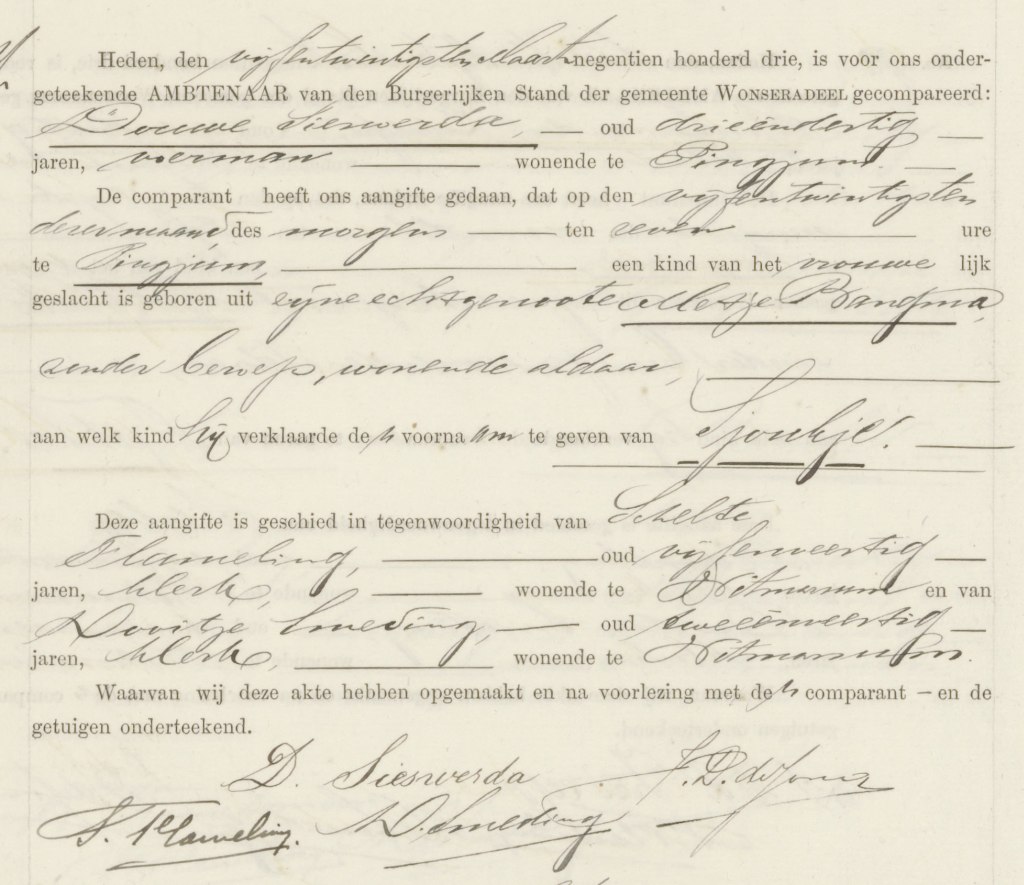 Heden, den vijfentwintigsten Maart negentien honderd drie, is voor ons onder-
geteekende AMBTENAAR van den Burgerlijken Stand der gemeente WONSERADEEL gecompareerd:
Douwe Sieswerda, — oud drieëndertig —
jaren, voerman — wonende te Pingjum. —
De comparant heeft ons aangifte gedaan, dat op den vijfentwintigsten
dezer maand, des morgens — ten zeven — ure
te Pingjum, — een kind van het vrouwe lijk
geslacht is geboren uit zijne echtgenoote Aletje Bangma,
zonder beroep, wonende aldaar, —
aan welk kind hij verklaarde den voornaam te geven van Sjoukje. —
Deze aangifte is geschied in tegenwoordigheid van Schelte
Flameling, — oud vijfenveertig —
jaren, klerk, — wonende te Witmarsum en van
Dooitze Smeding, — oud tweeënveertig —
jaren, klerk, — wonende te Witmarsum.
Waarvan wij deze akte hebben opgemaakt en na voorlezing met den comparant – en de
getuigen onderteekend.
D. Sieswerda
S. Flameling. D. Smeding